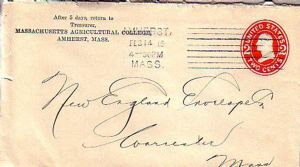 After 5 days, return to
Treasurer,
MASSACHUSETTS AGRICULTURAL COLLEGE,
AMHERST, MASS.
AMHERST,
FEB 14
4- PM
MASS.
UNITED STATES
TWO CENTS
New England Envelope Co
Worcester
Mass